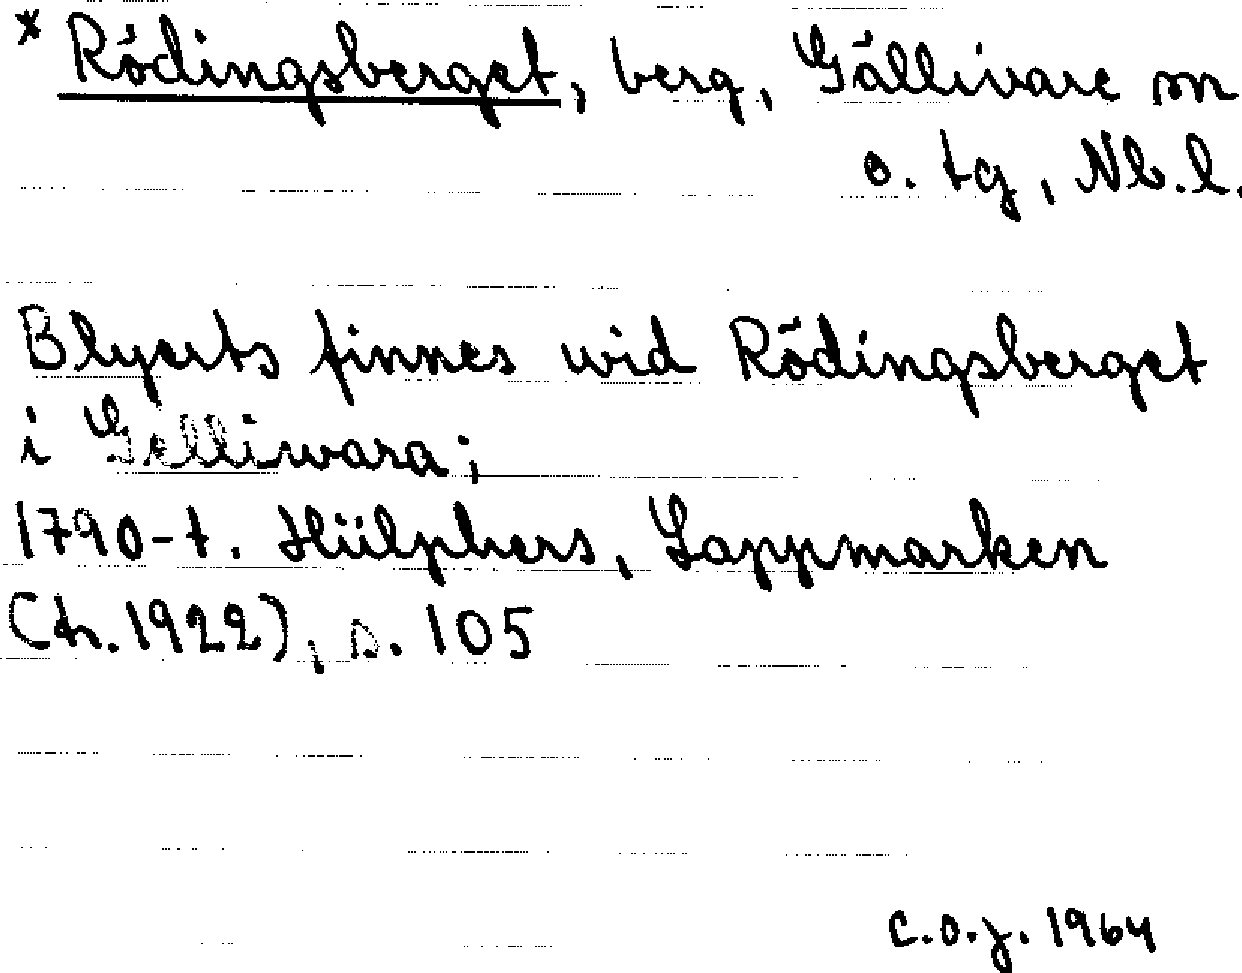 * Rödingsberget, berg, Gällivare sn
o. tg, Nb.l.
Blyerts finnes wid Rödingsberget
i Gelliwara;
1790-t. Hülphers, Lappmarken
(tr. 1922), s. 105
C.O.J. 1964